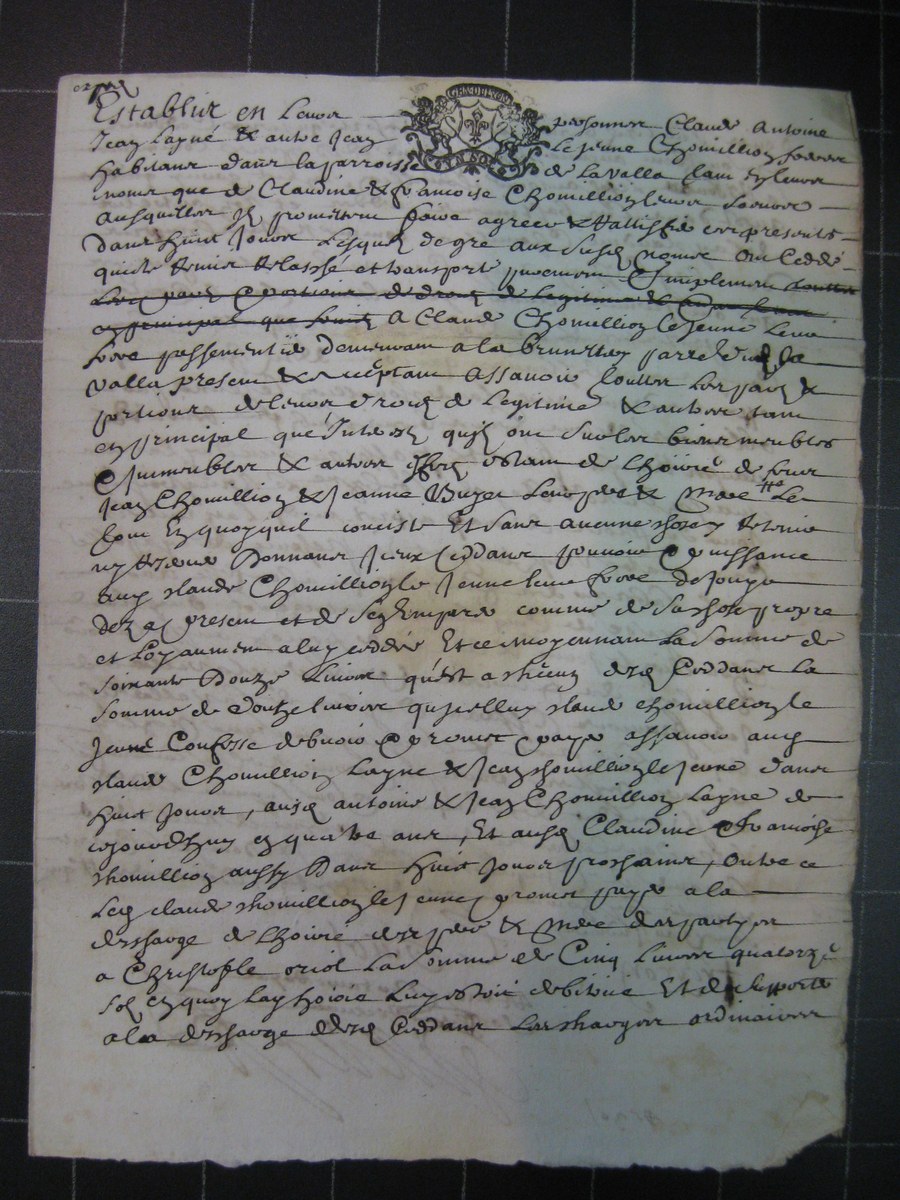 Establis en Leurs personnes Claude Antoine
Jean Layné & autre Jean Le jeune Chomillion freres
habitans dans la parroisse de La valla tant en leurs
noms que de Claudine & francoise Chomillion leurs soeurs
Ausquelles Ils promettent faire agreer & Rattiffier ces presentes
dans huit Jours Lesquels de gre aux susd noms ont Ceddé
quitté remis delassé et transporté purement & simplement touttes
Les parts & portions de droits de Legitime &
en principal que A Claude Chomillion le Jeune Leur
frere passementie demeurant a la brunettey parroisse dud La
valla present & acceptant Assavoir touttes Les parts &
portions de leurs droits de Legitime & autres tant
en principal que Interests quils ont sur les biens meubles
& Immeubles & autres effets estant de Lhoirie de feus
Jean Chomillion & Jeanne Leurs pere & Mere Le
tout En quoy quil conciste Et sans aucune chose y Retenir
ny Reserver Donnans Iceux Ceddans pouvoir & puissance
aud Claude Chomillion le Jeune leur frere de Jouyr
dez a present et de sen Emparer comme de sa chose propre
et Loyaument a luy ceddée Et ce moyennant La somme de
soixante Douze Livres qu'est a chacun desd Ceddans La
somme de Douze livres que Icelluy Claude Chomillion le
Jeune Confesse debvoir & promet payer assavoir aud
Claude Chomillion Layne & Jean Chomillion le Jeune dans
huit Jours, ausd antoine & Jean Chomillion Layne de
cejourdhuy en quatre ans, Et ausd Claudine & francoise
Chomillion aussy Dans huit Jours prochains, outre ce
Led claude Chomillion le Jeune promet payer a la
descharge de Lhoirie desd pere & Mere des partyes
a Christofle oriol La somme de Cinq Livres quatorze
sols En quoy Lad hoirie Luy estoit debitrice Et de supporter
a la descharge desd Ceddans Les charges ordinaires